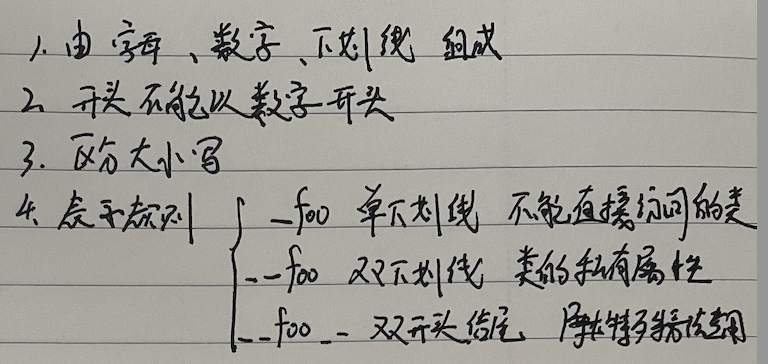 1. 由 字母、数字、下划线 组成
2. 开头 不能以数字开头
3. 区分大小写
4. 表示规则 { _foo 单下划线 不能直接访问的类
__foo 双下划线 类的私有属性
__foo__ 双开头结尾